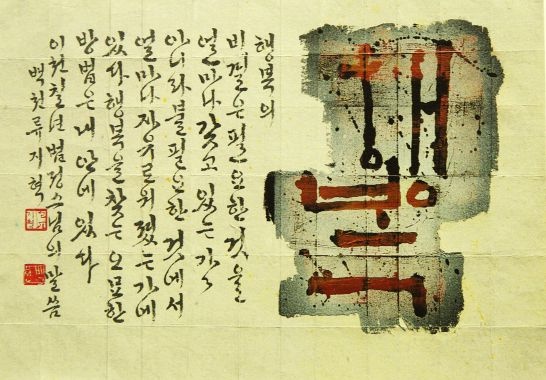 행복
행복의
비결은 필요한 것을
얼마나 갖고 있는가
아니라 불필요한 것에서
얼마나 자유로워졌는가에
있다 행복을 찾는 오묘한
방법은 내 안에 있다
이천칠년 법정스님의 말씀
백천 류지혁